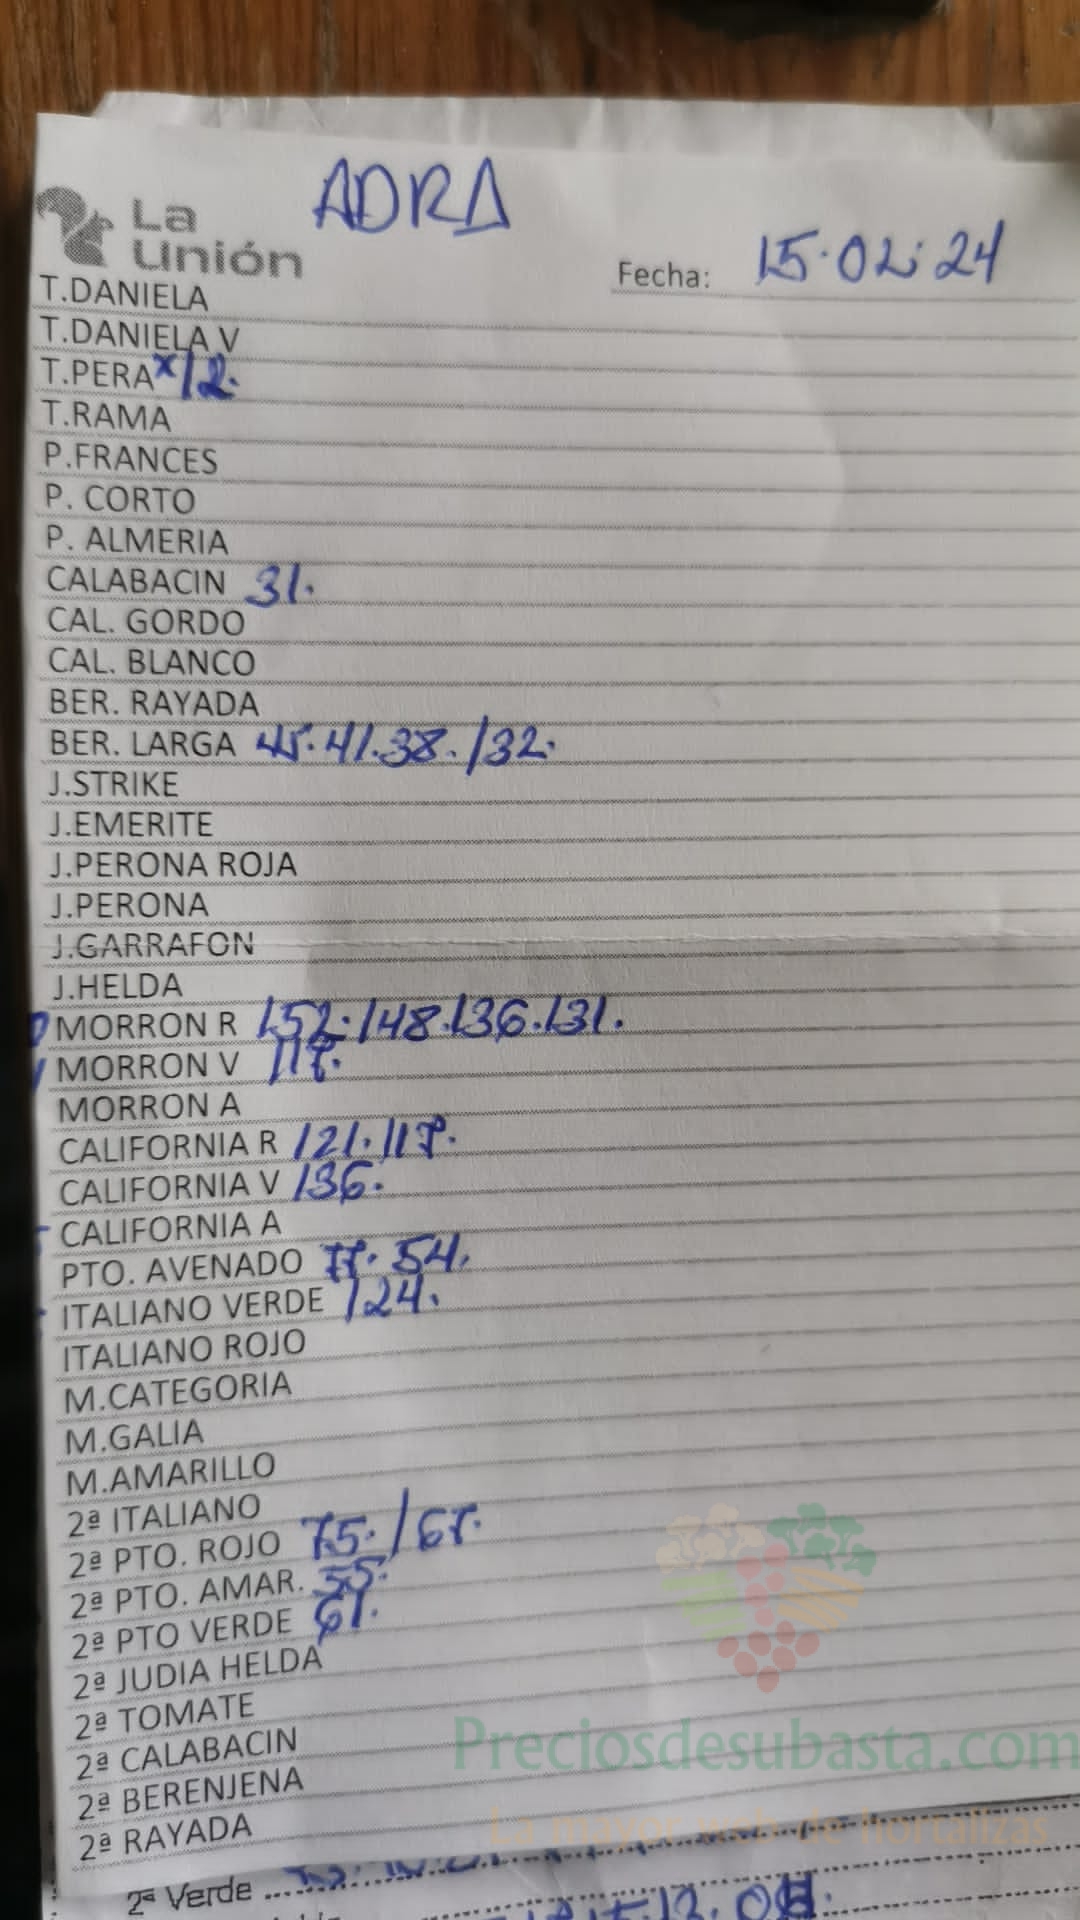 La
Unión
ADRA
Fecha: 15.02.24
T.DANIELA
T.DANIELA V
T.PERA x/2.
T.RAMA
P.FRANCES
P. CORTO
P. ALMERIA
CALABACIN 31.
CAL. GORDO
CAL. BLANCO
BER. RAYADA
BER. LARGA 45.41.38./32.
J.STRIKE
J.EMERITE
J.PERONA ROJA
J.PERONA
J.GARRAFON
J.HELDA
MORRON R 152.148.136.131.
MORRON V 117.
MORRON A
CALIFORNIA R 121.117.
CALIFORNIA V 136.
CALIFORNIA A
PTO. AVENADO 77. 54.
ITALIANO VERDE 124.
ITALIANO ROJO
M.CATEGORIA
M.GALIA
M.AMARILLO
2ª ITALIANO
2ª PTO. ROJO 75./67.
2ª PTO. AMAR. 55.
2ª PTO VERDE 61.
2ª JUDIA HELDA
2ª TOMATE
2ª CALABACIN
2ª BERENJENA
2ª RAYADA
Preciosdesubasta.com
La mayor web de hortalizas
2ª Verde